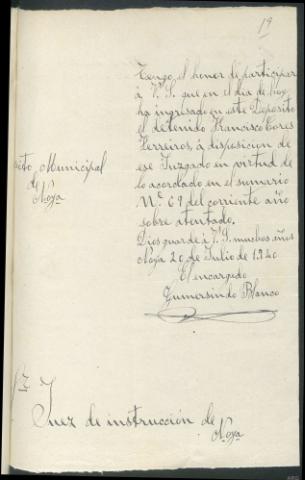 19
Tengo el honor de participar
á V. S. que en el día de hoy
ha ingresado en este Depósito
el detenido Francisco Lores
Ferreiros, á disposicion de
ese Juzgado en virtud de
lo acordado en el sumario
Nº 69 del corriente año
sobre atentado.
Dios guarde á V. S. muchos años
Noya 20 de Julio de 1940
El encargado
Gumersindo Blanco
Municipal
de
Noya
Juez de instrucción de
Noya